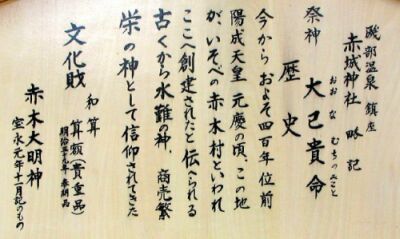 磯部温泉 鎮座
赤城神社 略記
祭神 大己貴命
おおなむちのみこと
歴史
今からおよそ四百年位前
陽成天皇 元慶の頃、この地
が、いそべの赤木村といわれ
ここへ創建されたと伝へられる
古くから水難の神、商売繁
栄の神として信仰されてきた
文化財
和算
算額(貴重品)
明治五十九年 奉納品
赤木大明神
宝永元年十一月記のもの